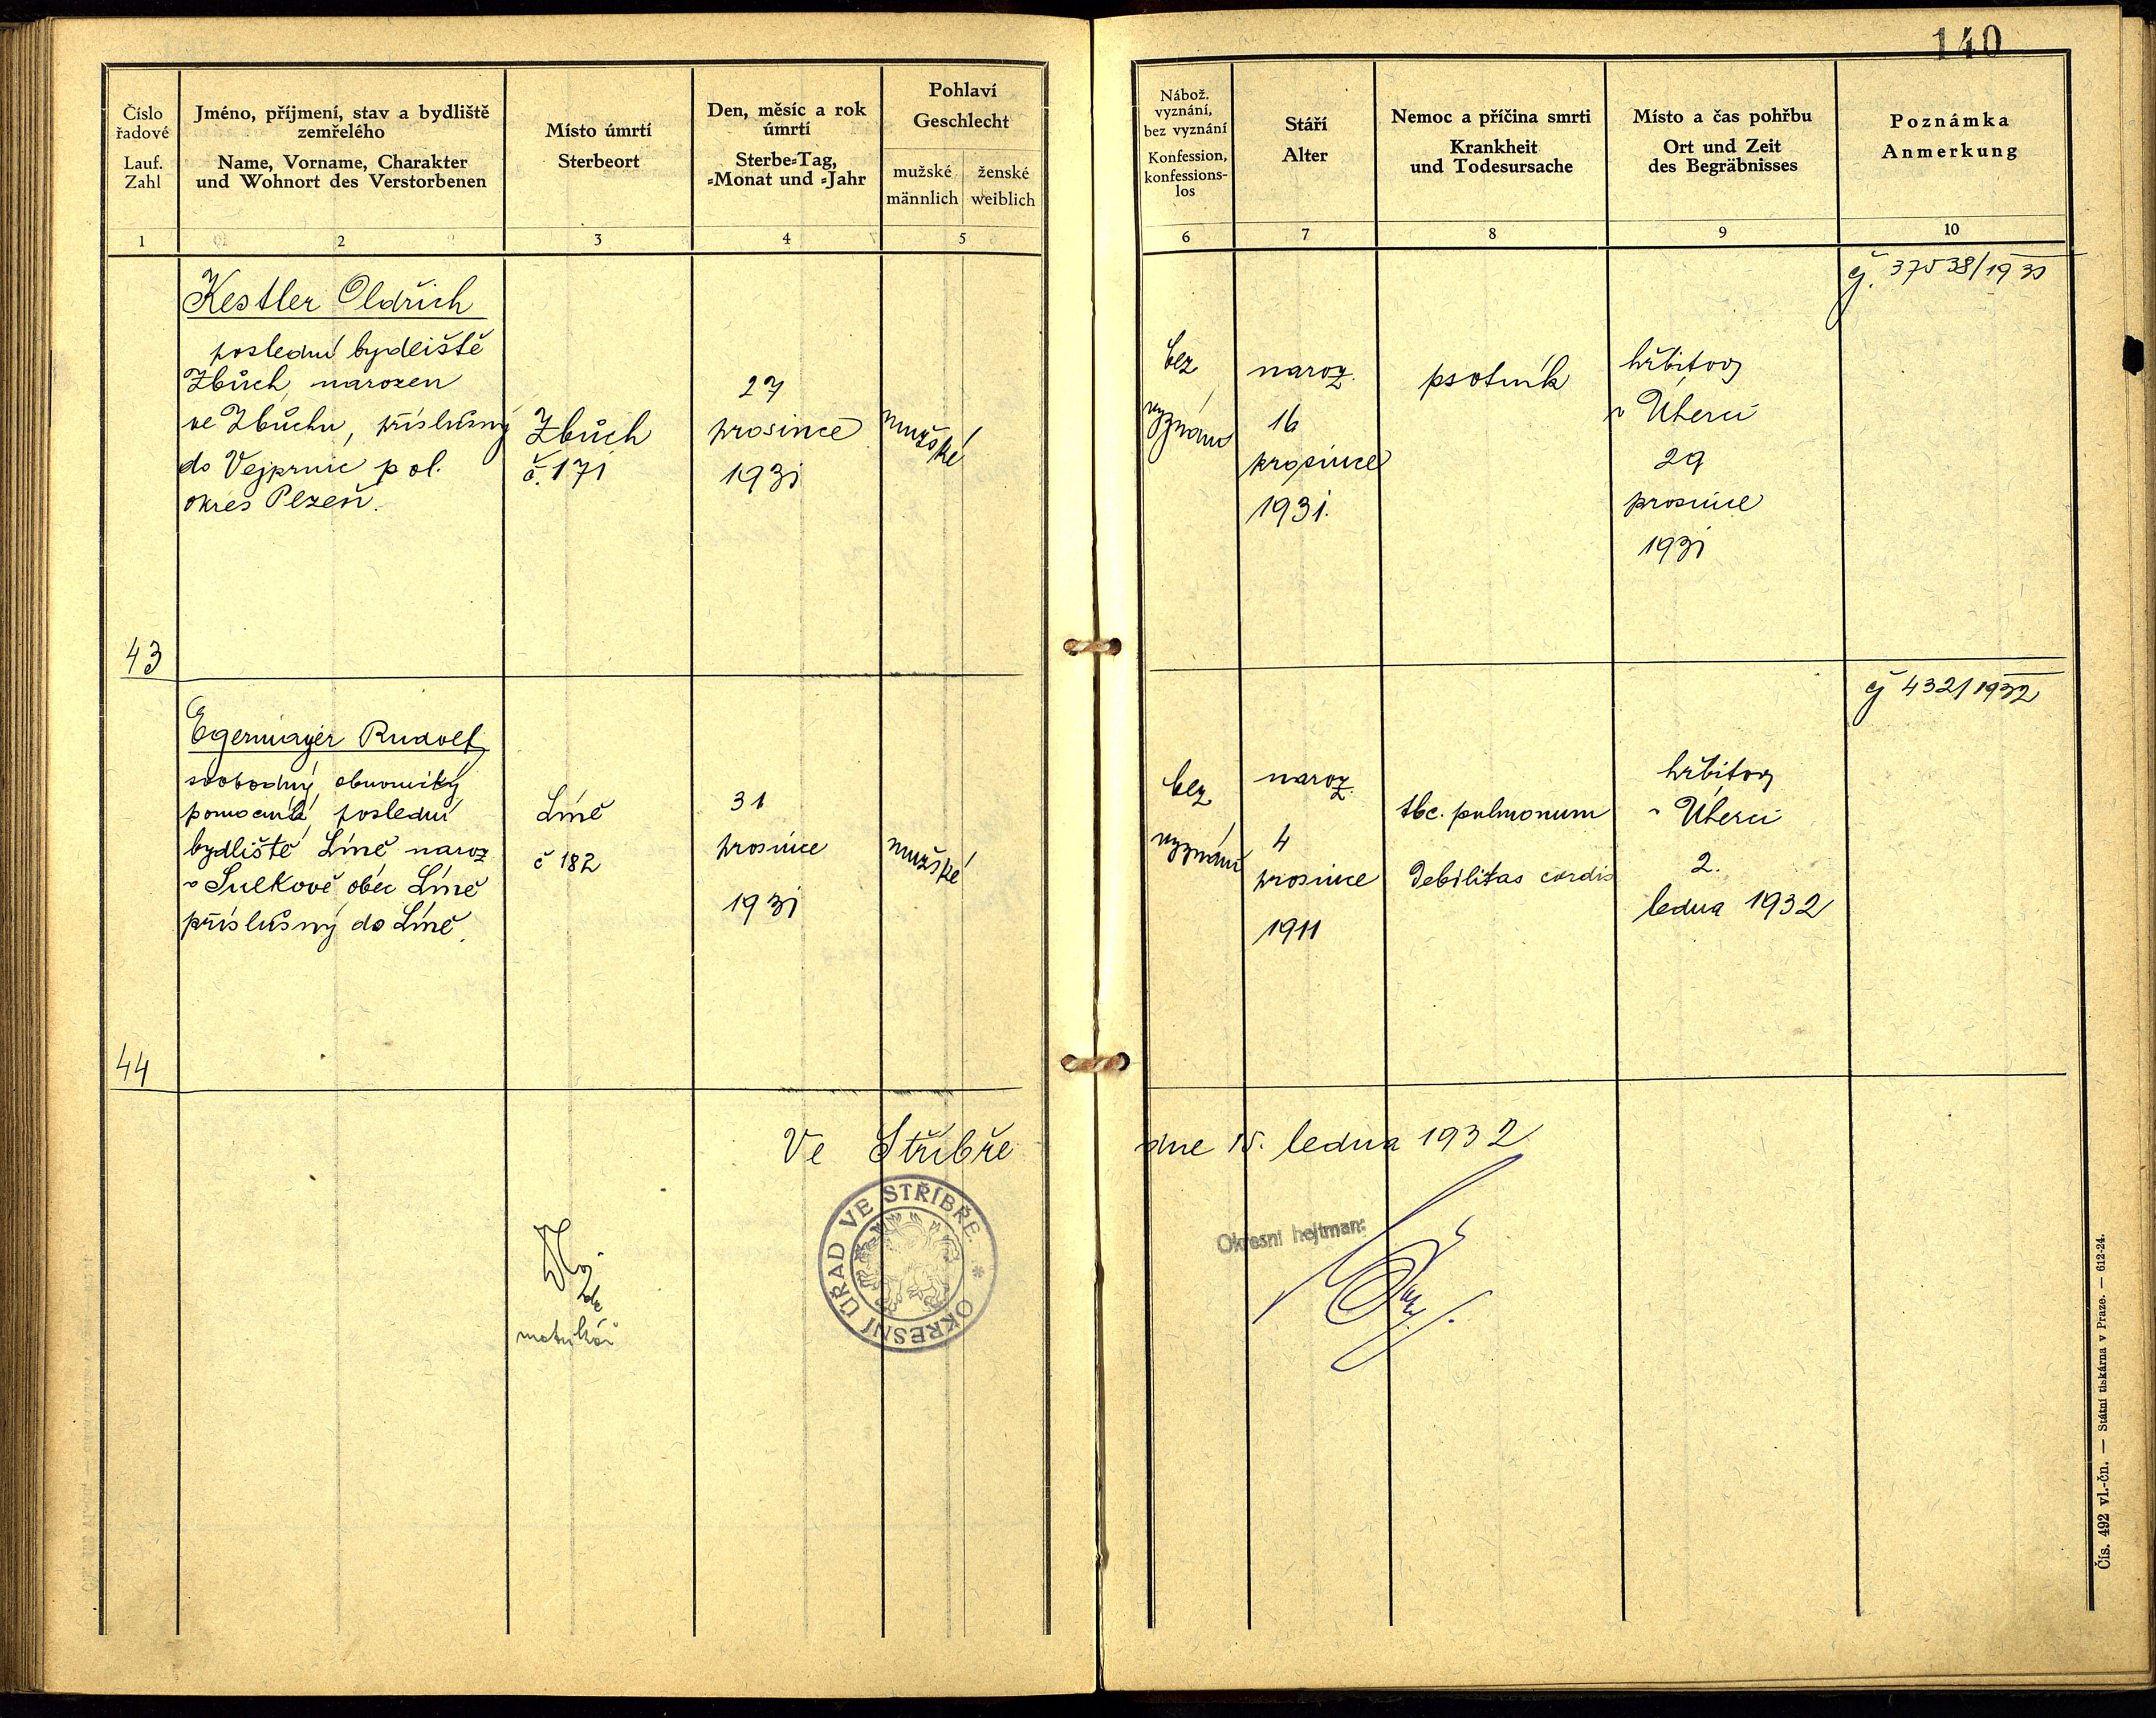 140
Číslo řadové
Lauf. Zahl
Jméno, příjmení, stav a bydliště
zemřelého
Name, Vorname, Charakter
und Wohnort des Verstorbenen
Místo úmrtí
Sterbeort
Den, měsíc a rok
úmrtí
Sterbe-Tag,
-Monat und -Jahr
Pohlaví
Geschlecht
mužské
männlich
ženské
weiblich
Nábož.
vyznání,
bez vyznání
Konfession,
konfessions-
los
Stáří
Alter
Nemoc a příčina smrti
Krankheit
und Todesursache
Místo a čas pohřbu
Ort und Zeit
des Begräbnisses
Poznámka
Anmerkung
1 2 3 4 5 6 7 8 9 10
43
Kestler Oldřich
poslední bydliště
Zbůch, narozen
ve Zbůchu, příslušný
do Vejprnic pol.
okres Plzeň.
Zbůch
č. 171
27
prosince
1931
mužské
bez
vyznání
naroz.
16
prosince
1931.
psotník
hřbitov
v Úherci
29
prosince
1931
44
Egermayer Rudolf
svobodný, obuvnický
pomocník, poslední
bydliště Líně naroz
v Sulkově obec Líně
příslušný do Líně.
Líně
č 182
31
prosince
1931
mužské
bez
vyznání
naroz.
4
prosince
1911
tbc. pulmonum
Debilitas cordis
hřbitov
v Úherci
2.
ledna 1932
čj 432/1932
Ve Stříbře dne 15. ledna 1932
matrikář
OKRESNÍ ÚŘAD VE STŘÍBŘE. *
Okresní hejtman:
Čís. 492 vl.-čn. — Státní tiskárna v Praze. — 612-24.